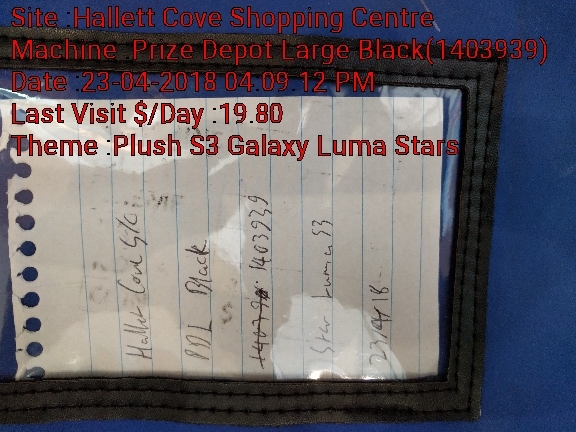 Site :Hallett Cove Shopping Centre
Machine :Prize Depot Large Black(1403939)
Date :23-04-2018 04.09.12 PM
Last Visit $/Day :19.80
Theme :Plush S3 Galaxy Luma Stars
Hallet Cove S/C.
PDL Black
1403939
Star Lumas S3
23/4/18